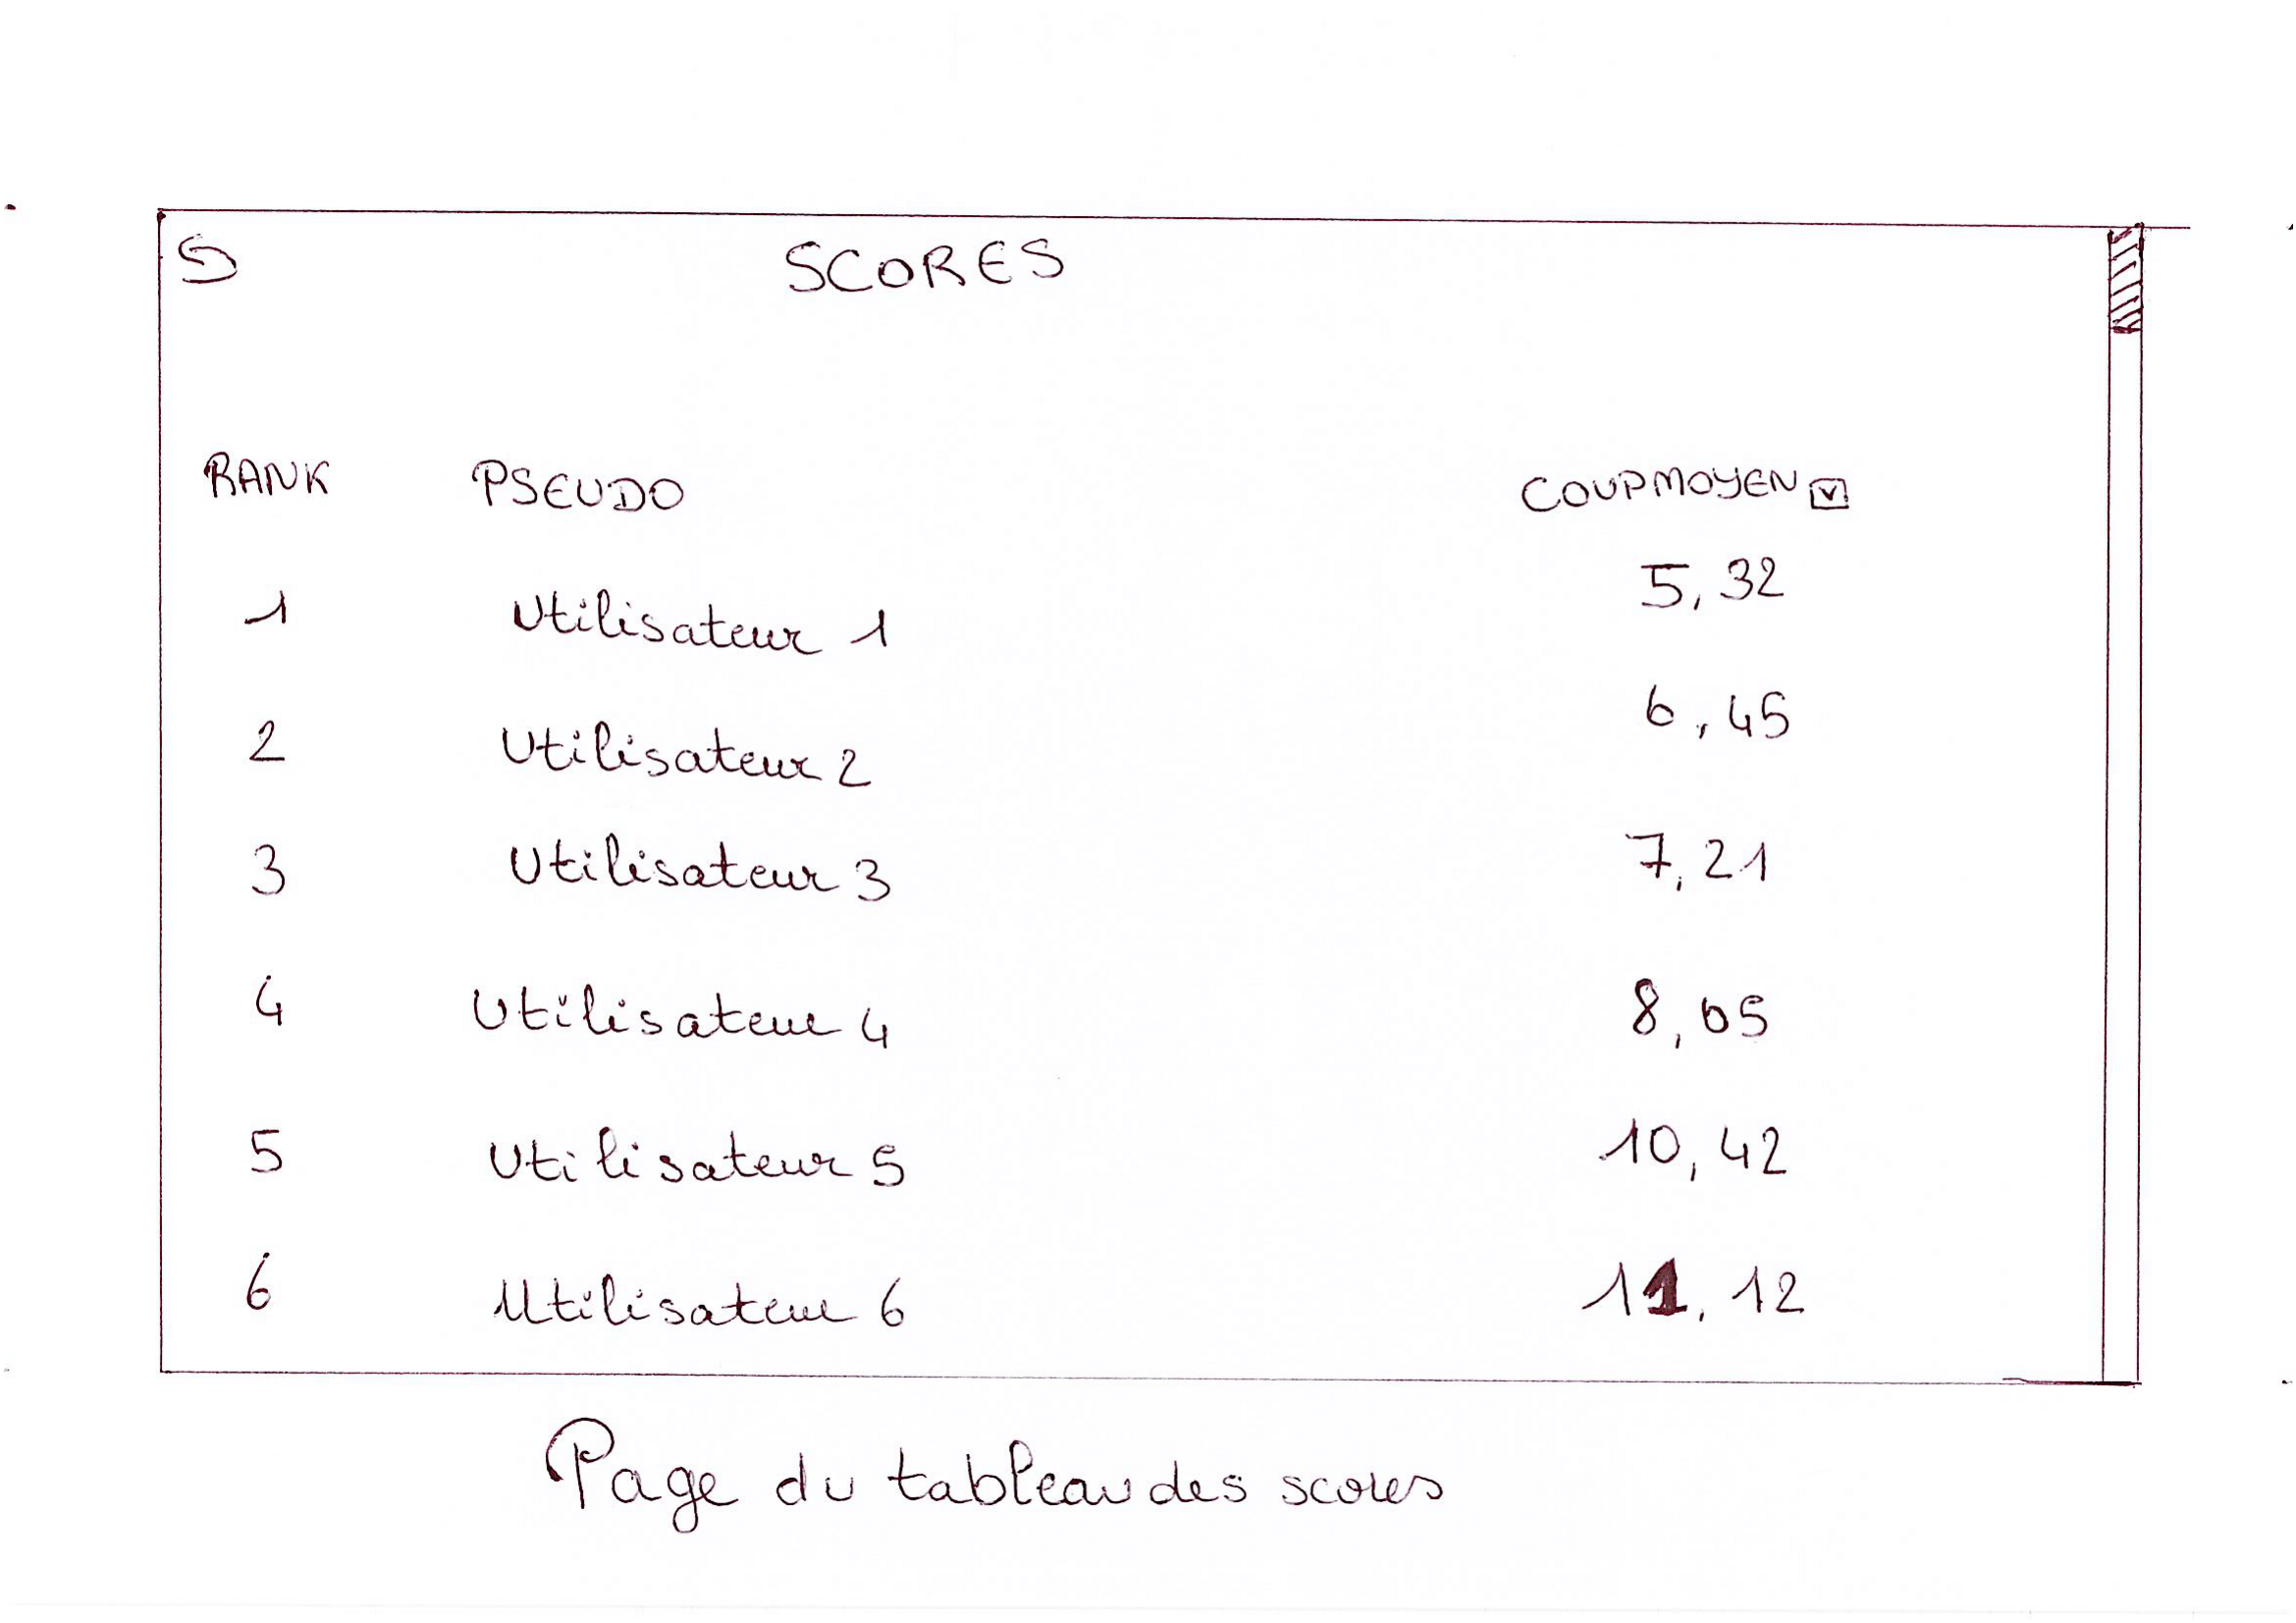 SCORES
RANK PSEUDO COUPMOYEN
1 Utilisateur 1 5,32
2 Utilisateur 2 6,45
3 Utilisateur 3 7,21
4 Utilisateur 4 8,05
5 Utilisateur 5 10,42
6 Utilisateur 6 11,12
Page du tableau des scores